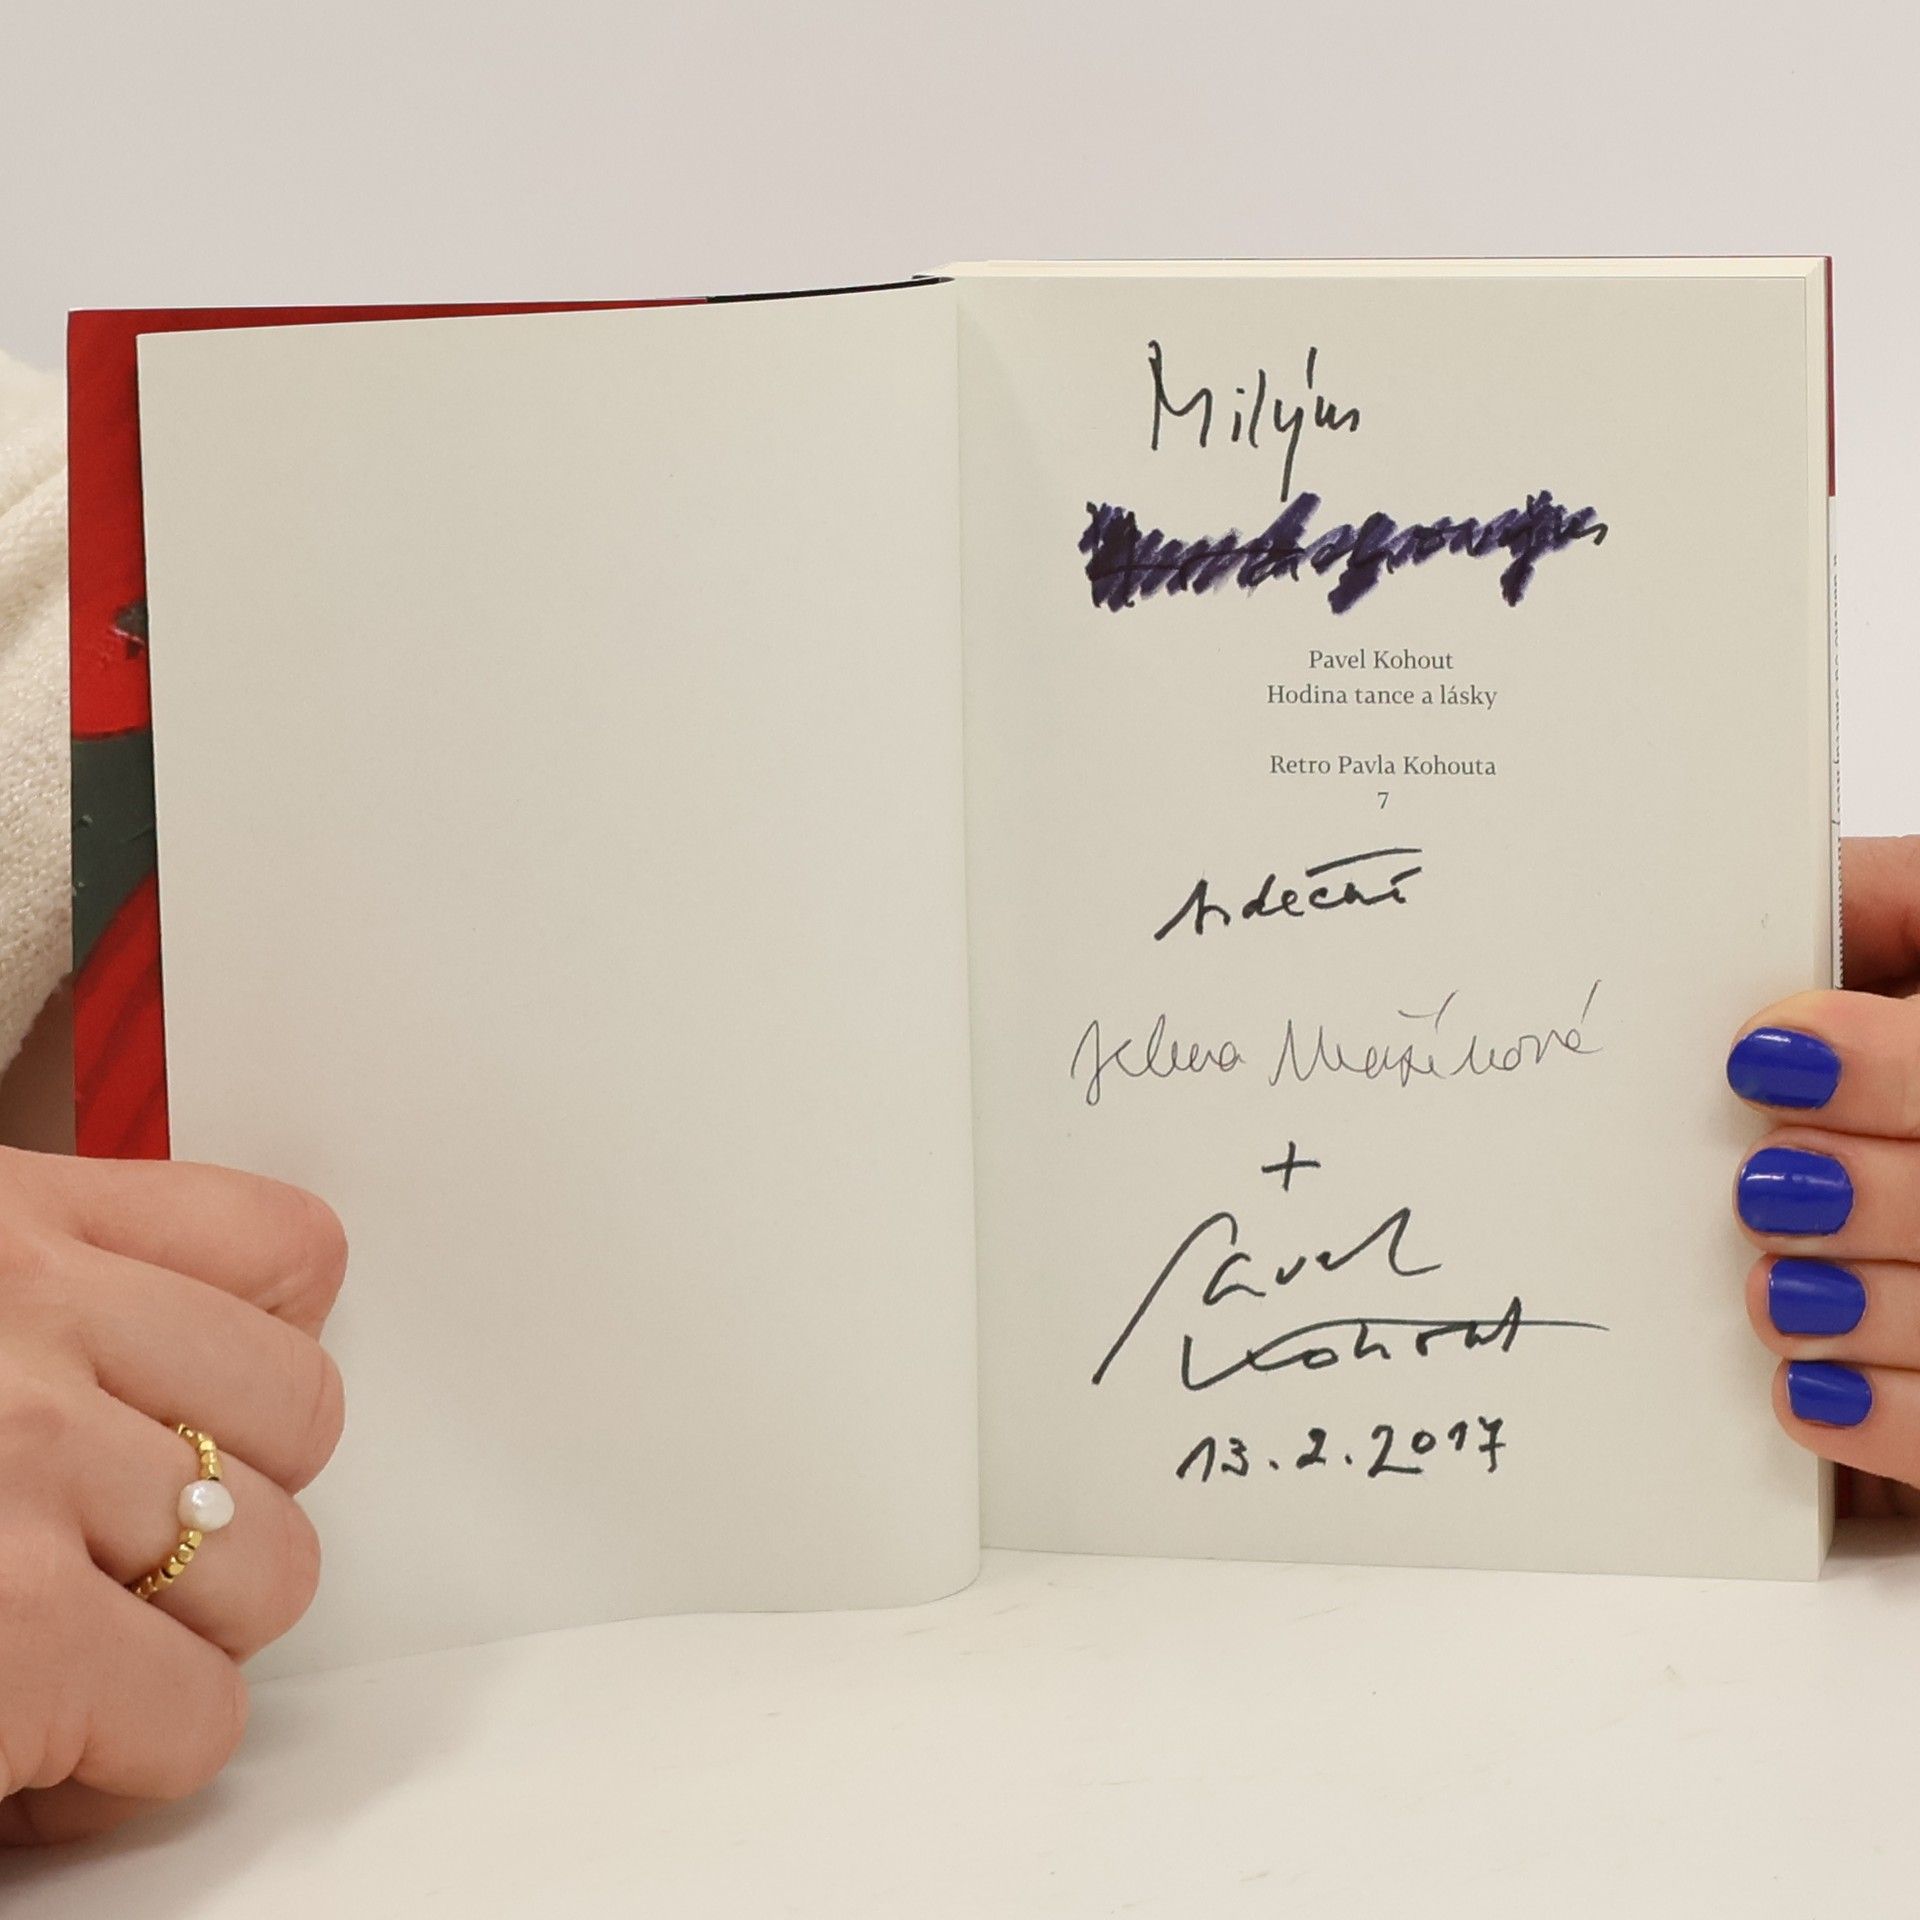 Milým
Pavel Kohout
Hodina tance a lásky
Retro Pavla Kohouta
7
srdečně
Jelena Mašínová
+
Pavel
Kohout
13.2.2017